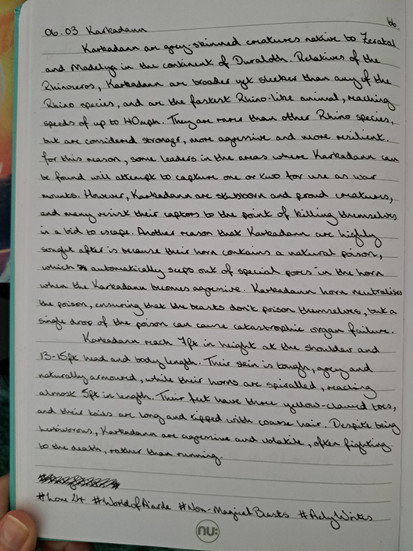 06.03 Karkadann
66.
Karkadann are grey-skinned creatures native to Zerakal
and Madelyn in the continent of Duraloth. Relatives of the
Rhinoceros, Karkadann are broader yet sleeker than any of the
Rhino species, and are the fastest Rhino-like animal, reaching
speeds of up to 40mph. They are rarer than other Rhino species,
but are considered stronger, more aggressive and more resilient.
For this reason, some leaders in the areas where Karkadann can
be found will attempt to capture one or two for use as war
mounts. However, Karkadann are stubborn and proud creatures,
and many resist their captors to the point of killing themselves
in a bid to escape. Another reason that Karkadann are highly
sought after is because their horn contains a natural poison,
which automatically seeps out of special pores in the horn
when the Karkadann becomes aggressive. Karkadann horn neutralises
the poison, ensuring that the beasts don't poison themselves, but a
single drop of the poison can cause catastrophic organ failure.
Karkadann reach 7ft in height at the shoulder and
13-15ft head and body length. Their skin is tough, grey and
naturally armoured, while their horns are spiralled, reaching
almost 5ft in length. Their feet have three yellow-clawed toes,
and their tails are long and tipped with coarse hair. Despite being
herbivorous, Karkadann are aggressive and volatile, often fighting
to the death, rather than running.
#Lore24 #WorldofAiarde #Non-MagicalBeasts #AelyWrites
nu: